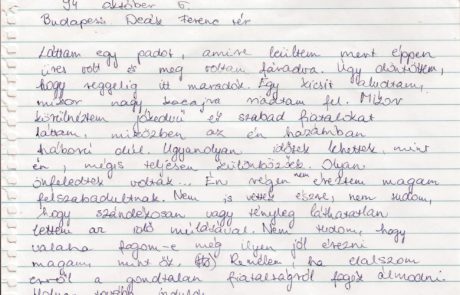 94 október 6.
Budapest Deák Ferenc tér
Láttam egy padot, amire leültem mert éppen
üres volt és meg voltam fáradva. Úgy döntöttem,
hogy reggelig itt maradok. Egy kicsit aludtam,
mikor nagy kacajra riadtam fel. Mikor
körülnéztem jókedvű és szabad fiatalokat
láttam, miközben az én hazámban
háború dúl. Ugyanolyan idősek lehettek mint
én, mégis teljesen különbözőek. Olyan
önfeledtek voltak... Én régen nem éreztem magam
felszabadultnak. Nem is vettek észre, nem tudom,
hogy szándékosan vagy tényleg láthatatlan
lettem az idő múltával. Nem tudom, hogy
valaha fogom-e még ilyen jól érezni
magam, mint ők. Remélem ha elalszom
erről a gondtalan fiatalságról fogok álmodni.